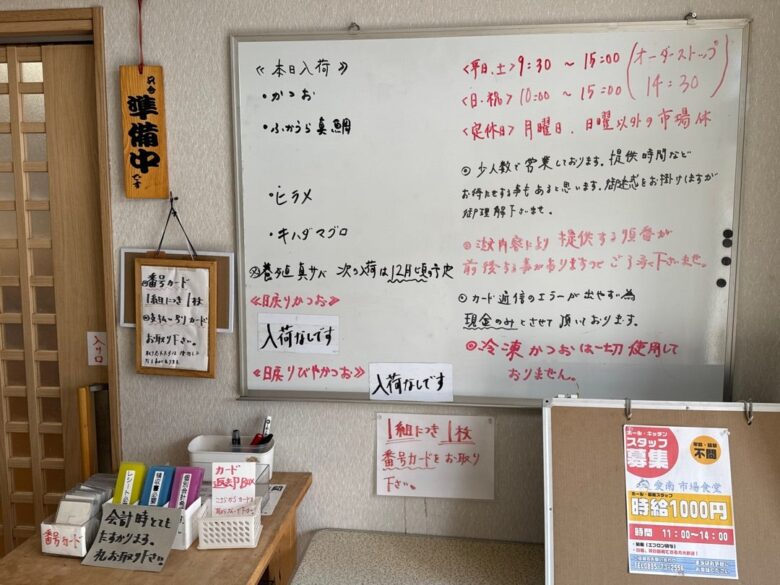 只今
準備中
です
≪本日入荷≫
・かつお
・ふかうら真鯛
・ヒラメ
・キハダマグロ
巻き直 真サバ 次の入荷は12月頃の予定
≪日戻りかつお≫
入荷なしです
≪日戻りびやかつお≫
入荷なしです
<平日、土> 9:30 ～ 15:00
<日・祝> 10:00 ～ 15:00
(オーダーストップ
14:30)
<定休日> 月曜日、日曜以外の市場休
◎少人数で営業しております。提供時間など
お待たせする事もあると思います。御迷惑をお掛けしますが
御理解下さいませ。
提供する順番が
前後する事がありますのでご了承下さいませ。
◎カード通信のエラーが出やすい為
現金のみとさせて頂いております。
◎冷凍かつおは一切使用して
おりません。
番号カード
1組につき1枚
お取り下さい。
入り口
1組につき1枚
番号カードをお取り
下さい。
カード
返却BOX
レシート必要
領収書必要
個別会計
番号カード
会計時とても
たすかります。
お取り下さい。
ホール・キッチン
スタッフ
募集
年齢・経験
不問
愛南市場食堂
ホール・厨房スタッフ
時給1000円
時間 11:00～14:00
TEL0895-73-2556